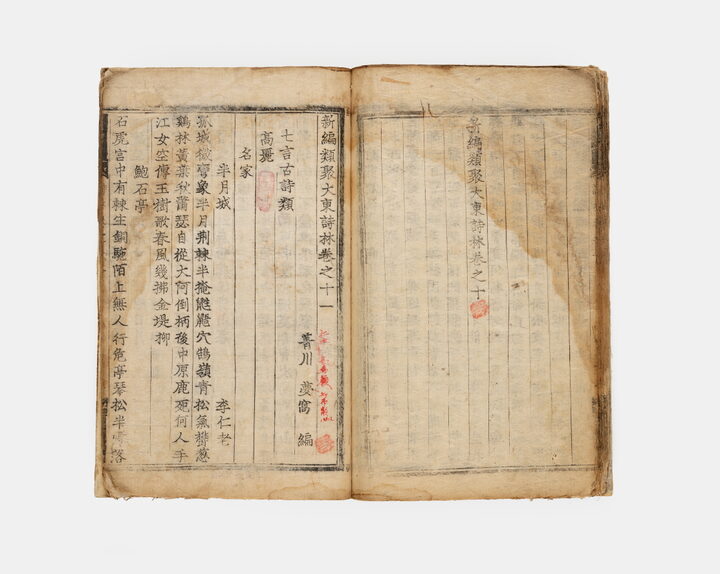 新編類聚大東詩林卷之十
新編類聚大東詩林卷之十一
菁川 夢窩 編
七言古詩類
高麗
名家
半月城 李仁老
孤城微彎象半月荆棘半掩鼪鼯穴鵠嶺青松氣鬱葱
鷄林黃葉秋蕭瑟自從大阿倒柄後中原鹿死何人手
江女空傳玉樹歌春風幾拂金堤柳
鮑石亭
石虎宮中有棘生銅駞陌上無人行危亭琴松半零落